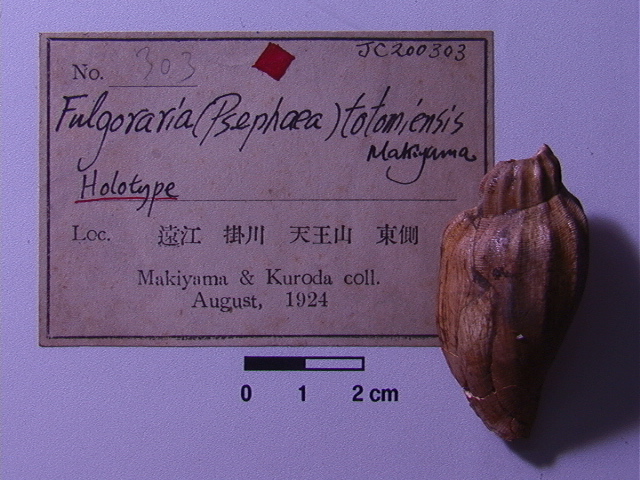 JC200303
No. 303
Fulgoraria (Psephaea) totomiensis
Makiyama
Holotype
Loc. 遠江 掛川 天王山 東側
Makiyama & Kuroda coll.
August, 1924
0 1 2 cm